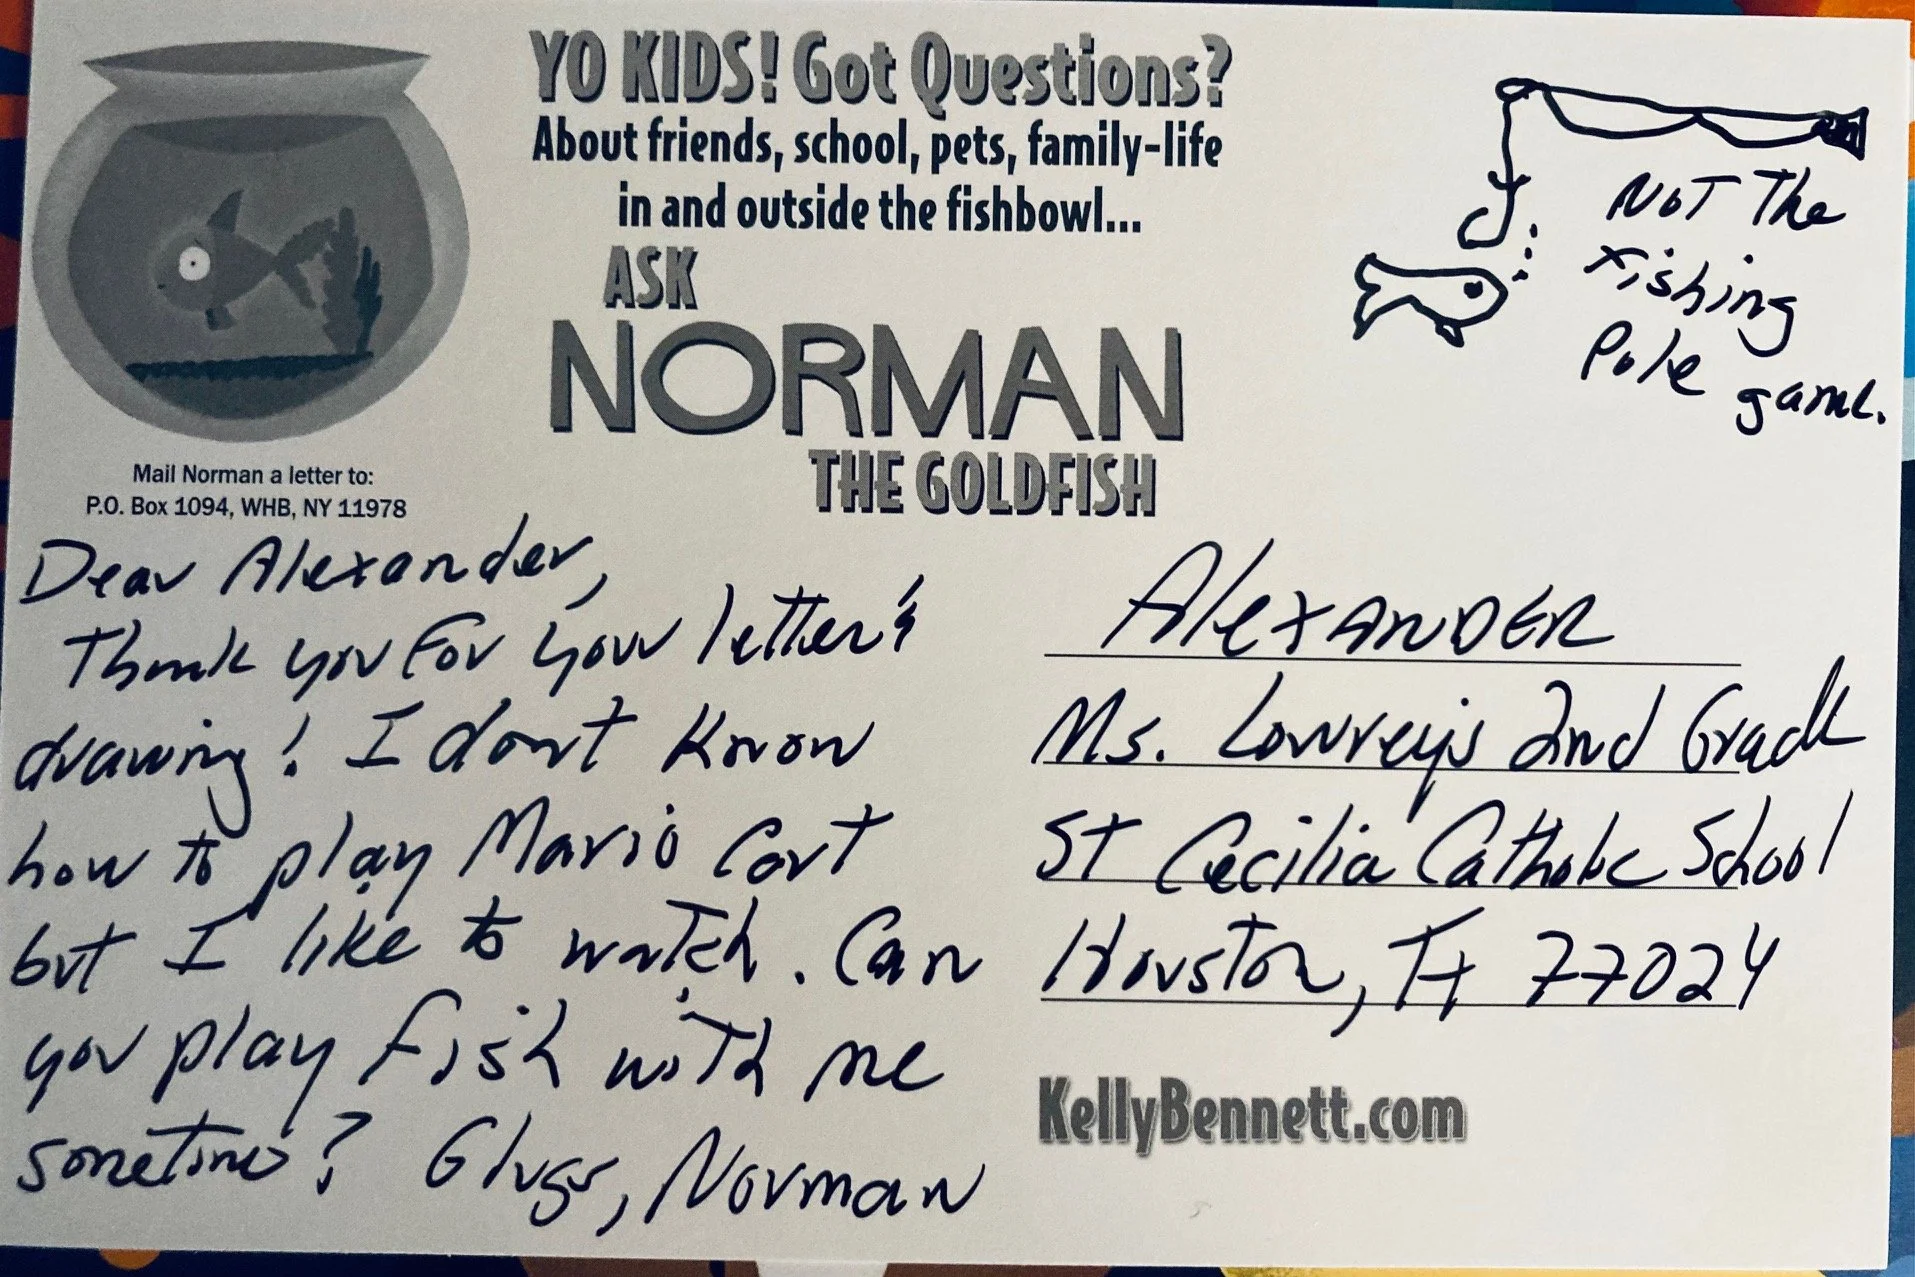 YO KIDS! Got Questions?
About friends, school, pets, family-life
in and outside the fishbowl...
ASK
NORMAN
THE GOLDFISH
Mail Norman a letter to:
P.O. Box 1094, WHB, NY 11978
NOT The
Fishing
Pole
game.
Dear Alexander,
Thank you For your letter &
drawing! I don't know
how to play Mario Cart
but I like to watch. Can
you play Fish with me
sometime? Glugs, Norman
AlexANDER
Ms. Lowrey's 2nd Grade
St Cecilia Catholic School
Houston, Tx 77024
KellyBennett.com